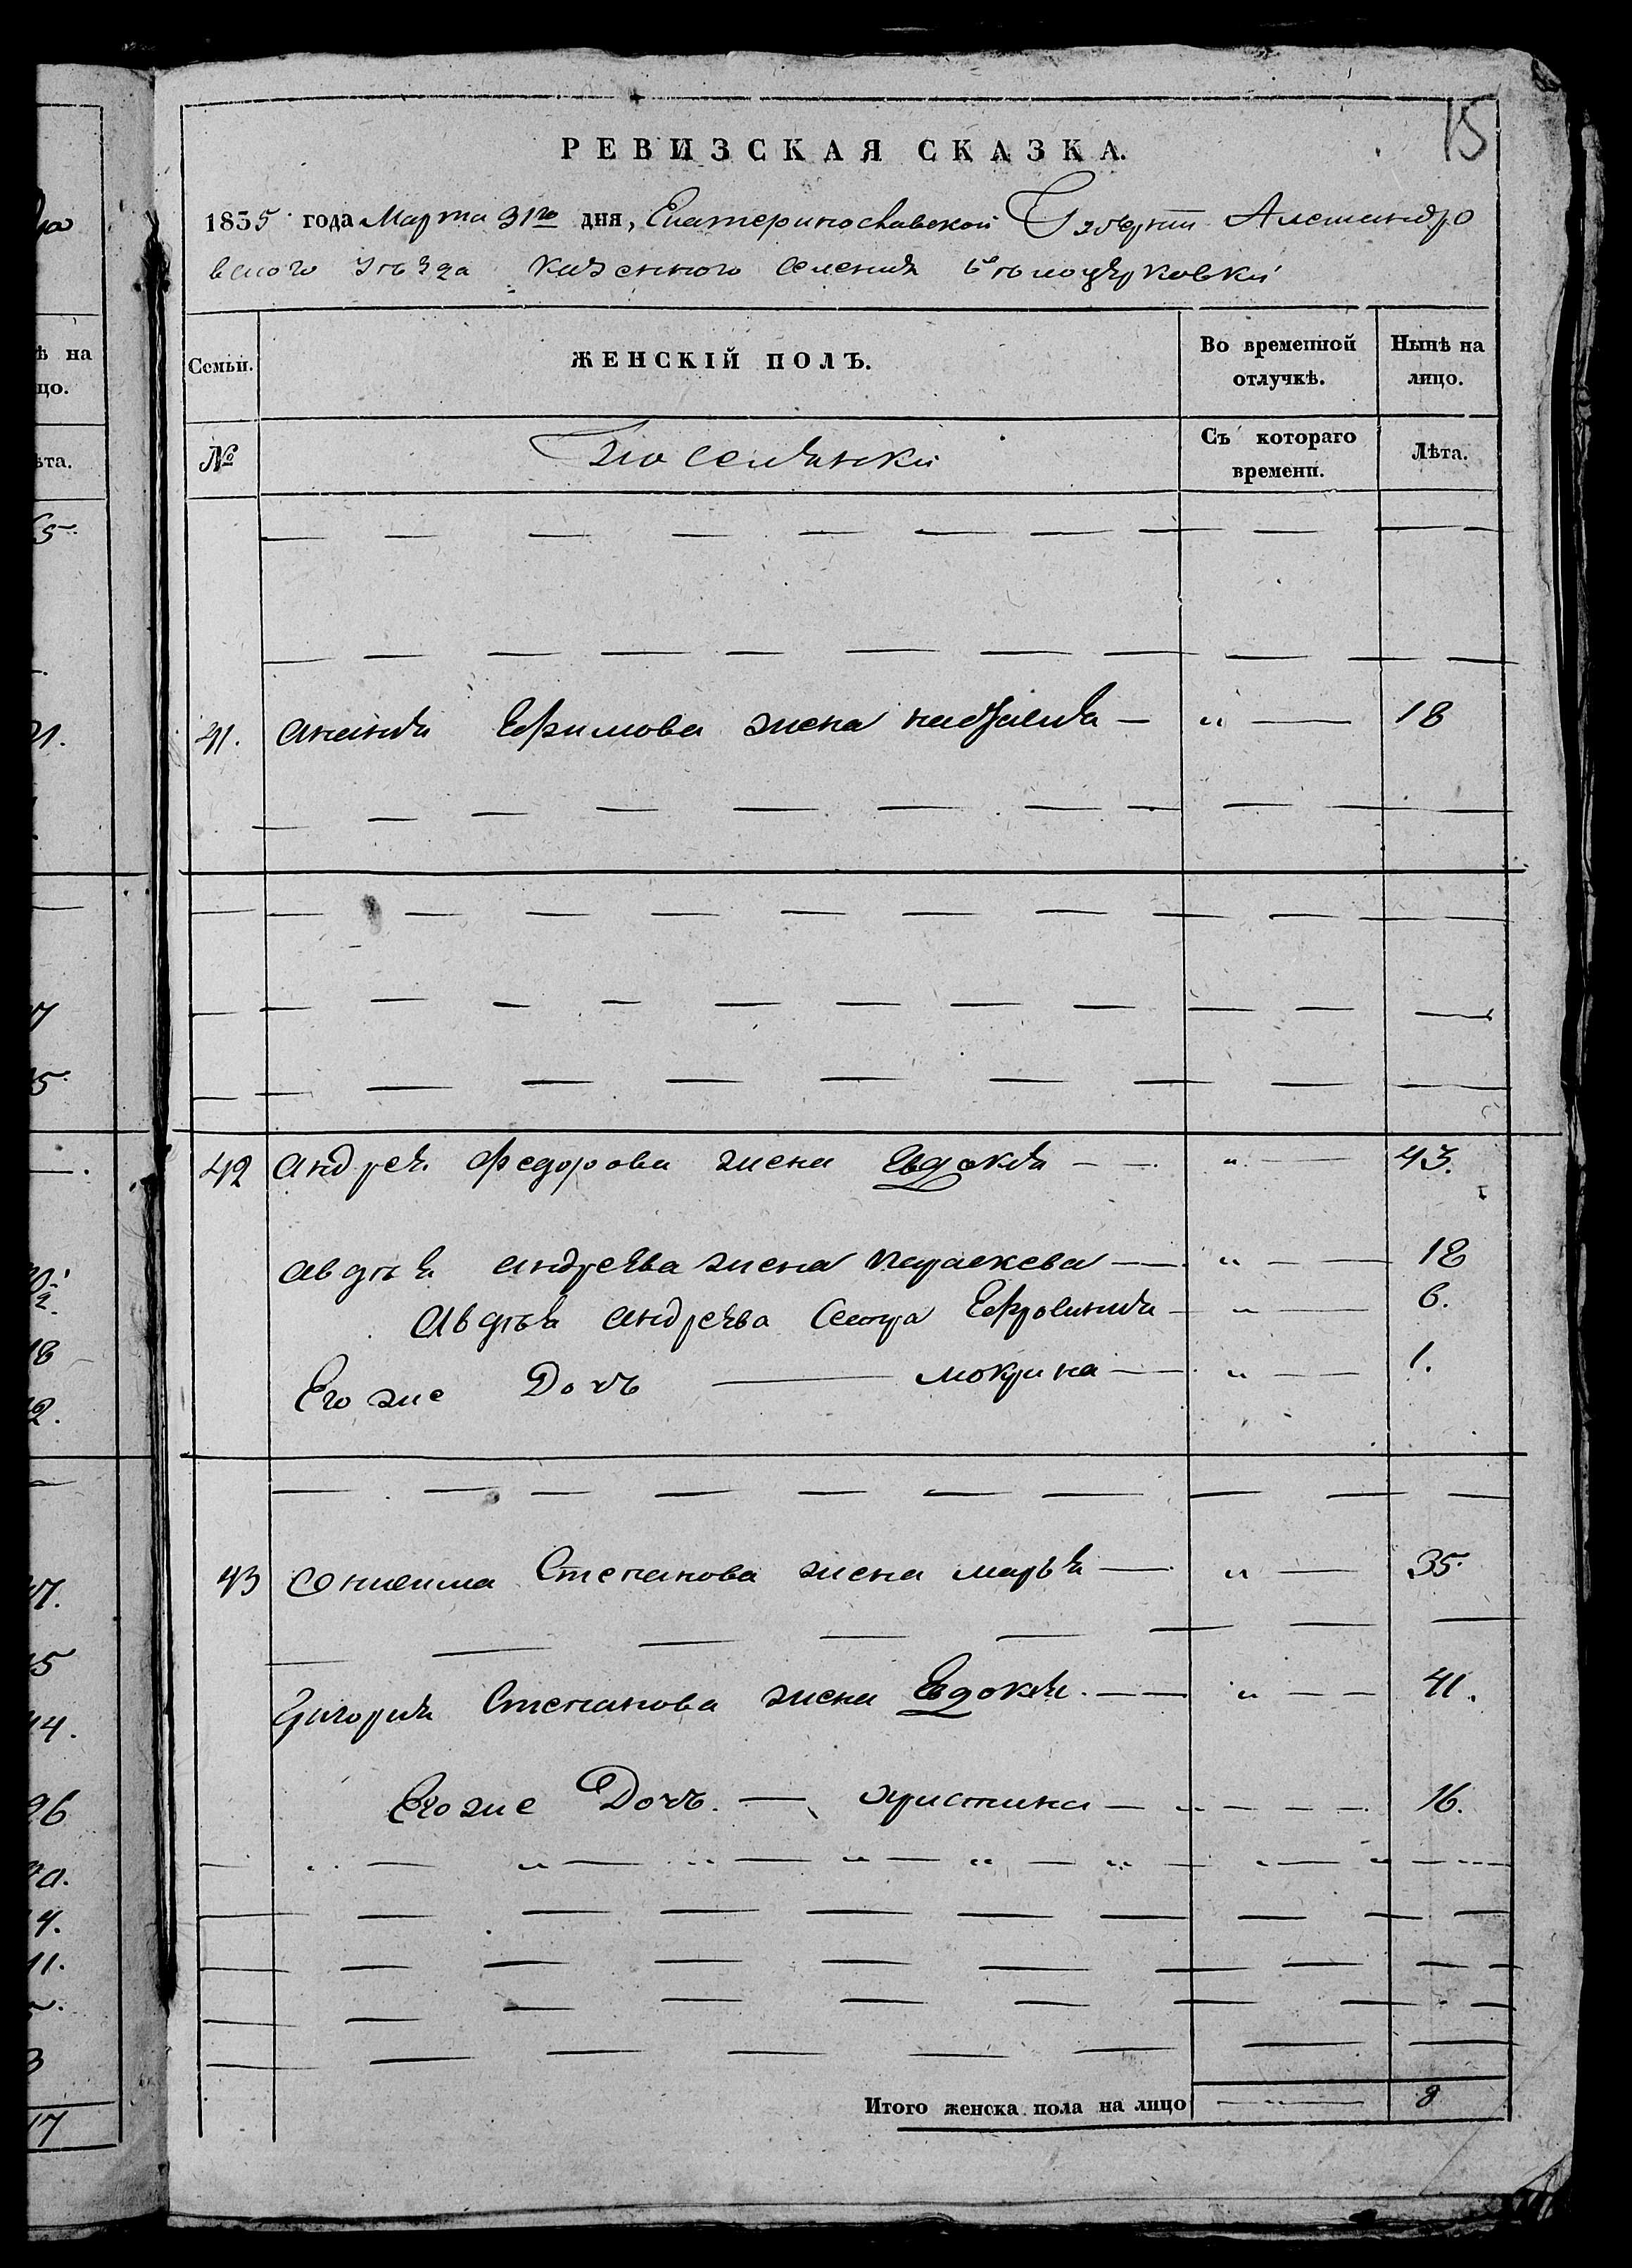 15
РЕВИЗСКАЯ СКАЗКА.
1835 года Марта 31го дня, Екатеринославской Губернии Александро
вского уѣзда казенного селения Бѣлоцерковки
Семьи.
ЖЕНСКІЙ ПОЛЪ.
Во временной отлучкѣ.
Нынѣ на лицо.
№
Поселянки
Съ котораго времени.
Лѣта.
41. Анания Ефимова жена наталия — „ — 18
42 Андрея Федорова жена Евдокия — — „ — 43.
Авдѣя Андреева жена параскева — „ — — 18
Авдѣя Андреева Сестра Ефросиния — „ — 6.
Его же Дочь — мокрина — „ — — 1.
43 Онисима Степанова жена марья — „ — 35.
Григория Степанова жена Евдокия. — — „ — — 41.
Его же Дочь. — христина — „ — — — 16.
Итого женска пола на лицо — „ — 8
ѣ на
цо.
ѣта.